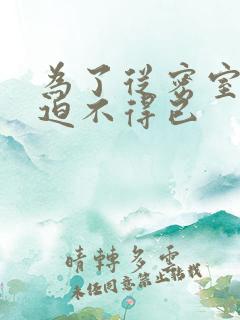 為了從密室
迫不得已
晴轉多雲
未经同意禁止转载